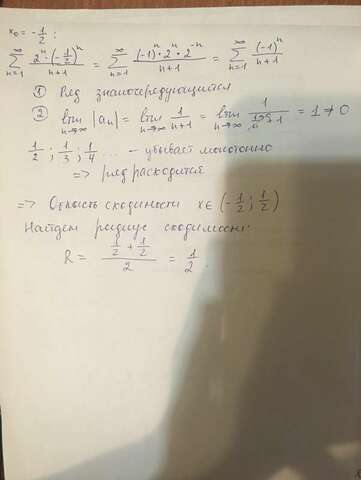 x₀ = -1/2 :
∑_{n=1}^{∞} 2ⁿ·(-1/2)ⁿ/(n+1) = ∑_{n=1}^{∞} (-1)ⁿ·2ⁿ·2⁻ⁿ/(n+1) = ∑_{n=1}^{∞} (-1)ⁿ/(n+1)
① Ряд знакочередующийся
② lim_{n→∞} |aₙ| = lim_{n→∞} 1/(n+1) = lim_{n→∞} = 1 ≠ 0
1/2 ; 1/3 ; 1/4 ... - убывает монотонно
=> ряд расходится
=> Область сходимости x ∈ (-1/2 ; 1/2)
Найдем радиус сходимости:
R = (1/2 + 1/2)/2 = 1/2.